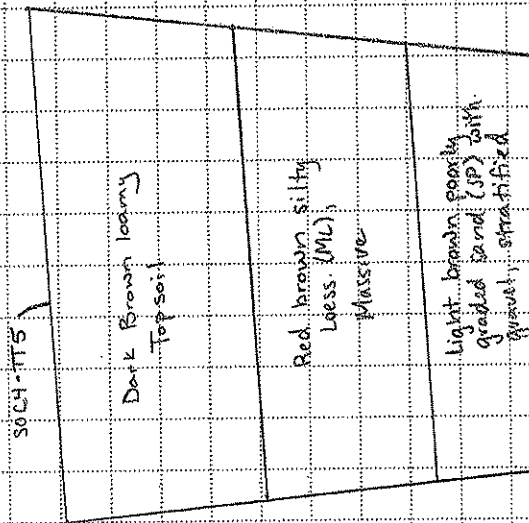 SOC4-TT5
Dark Brown loamy
Topsoil
Red brown silty
Loess. (ML),
Massive
Light brown poorly
graded sand (SP) with
gravel, stratified